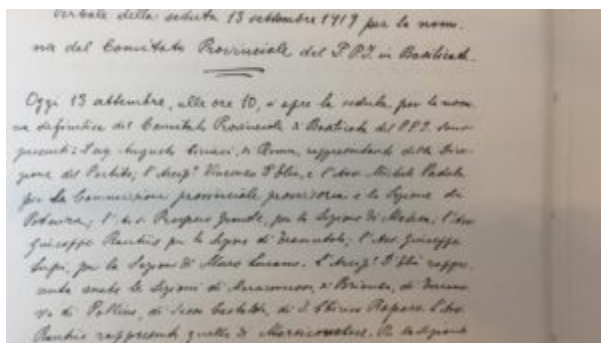 Verbale della seduta 13 settembre 1919 per la nomi-
na del Comitato Provinciale del P.P.I. in Basilicata.
Oggi 13 settembre, alle ore 10, si apre la seduta per la nomi-
na definitiva del Comitato Provinciale di Basilicata del P.P.I. Sono
presenti: l'avv. Augusto di Roma, rappresentante della Dire-
zione del Partito; l'Arcip. Vincenzo D'Elia, e l'Avv. Michele Padula
per la Commissione provinciale provvisoria e la Sezione di
Potenza; l'Avv. Prospero Grande, per la Sezione di Matera; l'Avv.
Giuseppe per la Sezione di Tramutola; l'Avv. Giuseppe
Lupi, per la Sezione di Muro Lucano. L'Arcip. D'Elia rappre-
senta anche le Sezioni di di Brienza, di Terrano-
va di Pollino, di Sasso Castalda, di S. Chirico Raparo. L'Avv.
rappresenta quella di Marsiconuovo. La Sezione